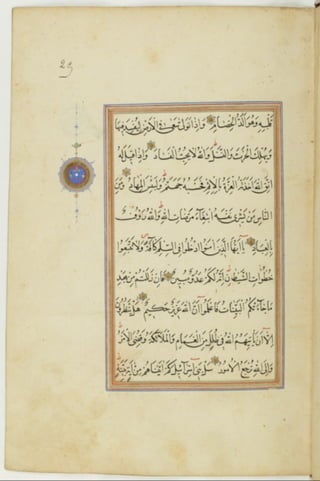 29
قَلْبِهِ وَهُوَ أَلَدُّ الْخِصَامِ وَإِذَا تَوَلَّى سَعَى فِي الْأَرْضِ لِيُفْسِدَ فِيهَا
وَيُهْلِكَ الْحَرْثَ وَالنَّسْلَ وَاللَّهُ لَا يُحِبُّ الْفَسَادَ وَإِذَا قِيلَ لَهُ
اتَّقِ اللَّهَ أَخَذَتْهُ الْعِزَّةُ بِالْإِثْمِ فَحَسْبُهُ جَهَنَّمُ وَلَبِئْسَ الْمِهَادُ وَمِنَ
النَّاسِ مَنْ يَشْرِي نَفْسَهُ ابْتِغَاءَ مَرْضَاتِ اللَّهِ وَاللَّهُ رَؤُفٌ
بِالْعِبَادِ يَا أَيُّهَا الَّذِينَ آمَنُوا ادْخُلُوا فِي السِّلْمِ كَافَّةً وَلَا تَتَّبِعُوا
خُطُوَاتِ الشَّيْطَانِ إِنَّهُ لَكُمْ عَدُوٌّ مُبِينٌ فَإِنْ زَلَلْتُمْ مِنْ بَعْدِ
مَا جَاءَتْكُمُ الْبَيِّنَاتُ فَاعْلَمُوا أَنَّ اللَّهَ عَزِيزٌ حَكِيمٌ هَلْ يَنْظُرُونَ
إِلَّا أَنْ يَأْتِيَهُمُ اللَّهُ فِي ظُلَلٍ مِنَ الْغَمَامِ وَالْمَلَائِكَةُ وَقُضِيَ الْأَمْرُ
وَإِلَى اللَّهِ تُرْجَعُ الْأُمُورُ سَلْ بَنِي إِسْرَائِيلَ كَمْ آتَيْنَاهُمْ مِنْ آيَةٍ بَيِّنَةٍ